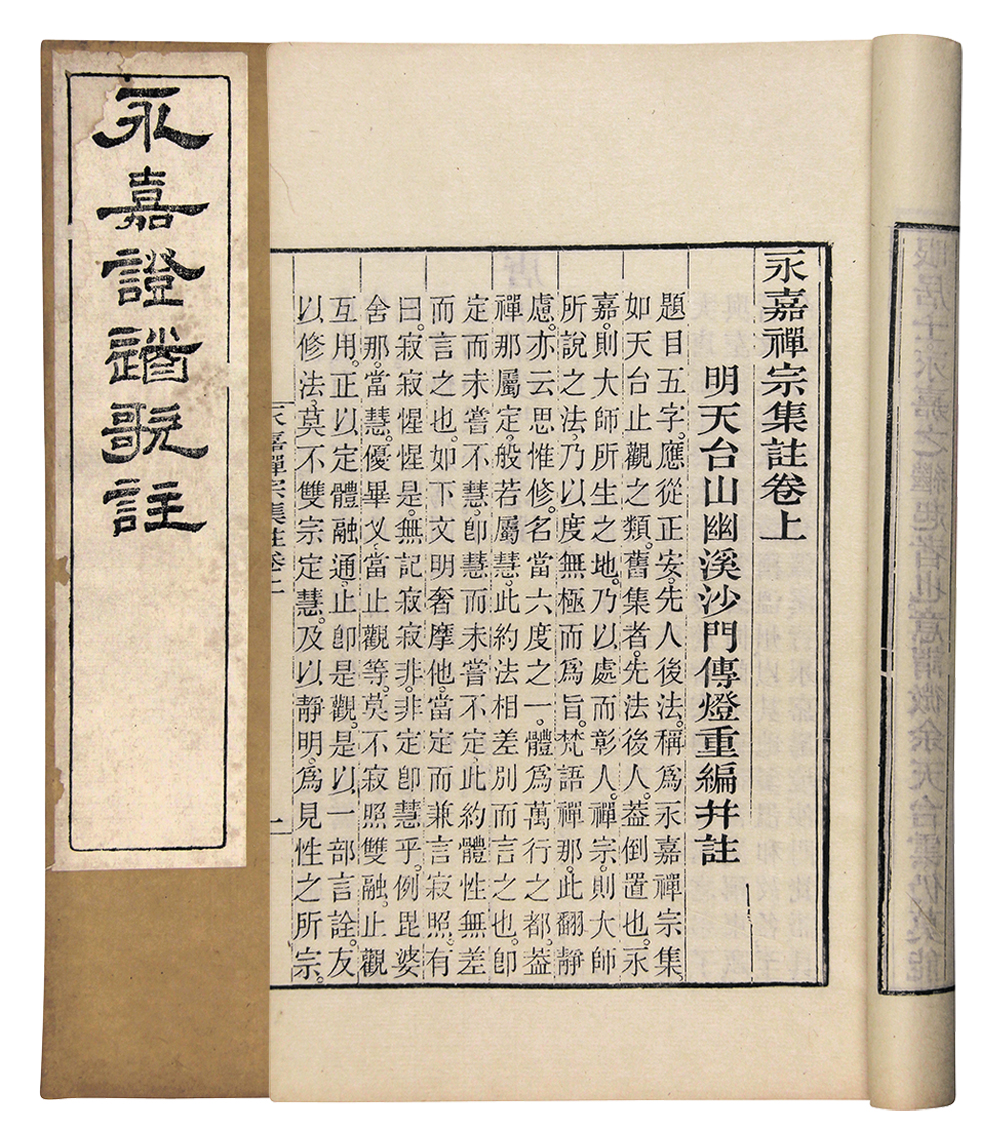 永嘉證道歌註
永嘉禪宗集註卷上
明天台山幽溪沙門傳燈重編幷註
題目五字。應從正安。先人後法。稱爲永嘉禪宗集。
如天台止觀之類。舊集者。先法後人。葢倒置也。永
嘉。則大師所生之地。乃以處而彰人。禪宗。則大師
所說之法。乃以度無極而爲旨。梵語禪那。此翻靜
慮。亦云思惟修。名當六度之一。體爲萬行之都。葢
禪那屬定。般若屬慧。此約法相差別而言之也。卽
定而未嘗不慧。卽慧而未嘗不定。此約體性無差
而言之也。如下文明奢摩他。當定而兼言寂照。有
曰。寂寂惺惺是。無記寂寂非。非定卽慧乎。例毘婆
舍那。當慧。優畢叉。當止觀等。莫不寂照雙融。止觀
互用。正以定體融通。止卽是觀。是以一部言詮。友
以修法。莫不雙宗定慧。及以靜明。爲見性之所宗。
永嘉禪宗集註卷上
一